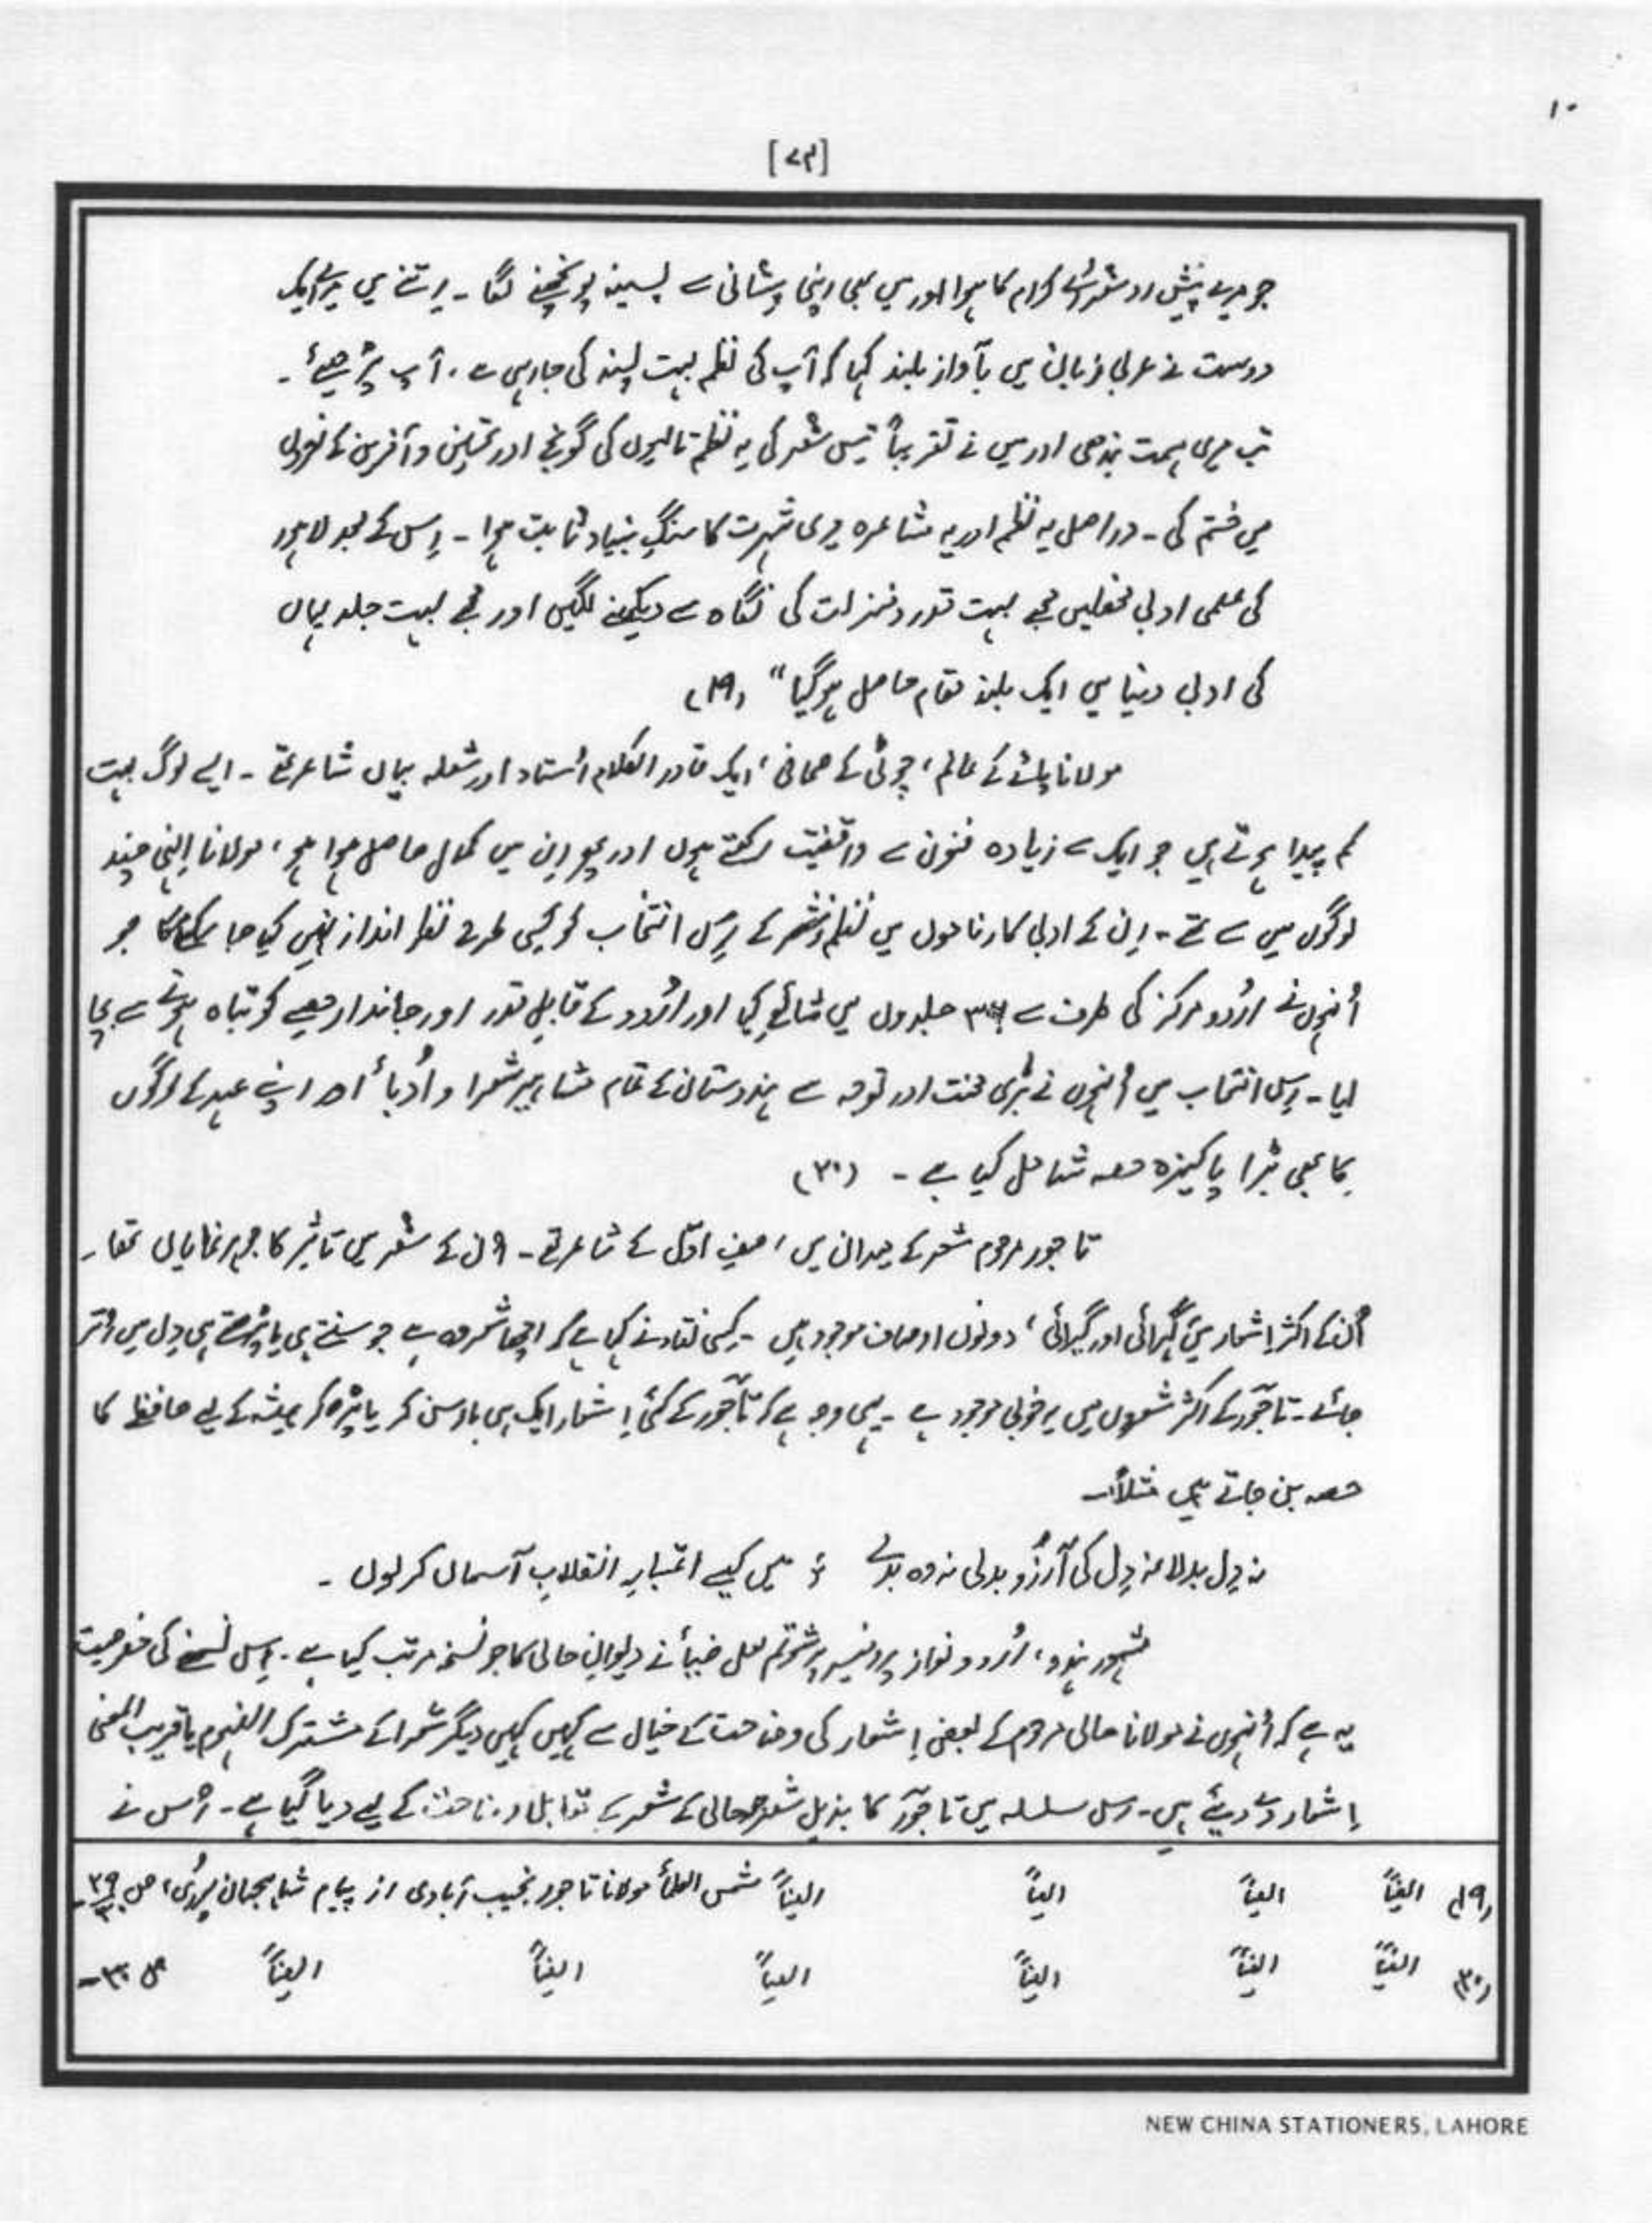 ۱۰
[۷۳]
جو میرے پیش رو شعرائے کرام کا ہوا اور میں بھی اپنی پیشانی سے پسینہ پونچھنے لگا۔ اِتنے میں میرے ایک
دوست نے عربی زبان میں بآوازِ بلند کہا کہ آپ کی نظم بہت پسند کی جا رہی ہے۔ آپ پڑھیئے۔
تب میری ہمت بندھی اور میں نے تقریباً تیس شعر کی یہ نظم تالیوں کی گونج اور تحسین و آفرین کے نعروں
میں ختم کی۔ دراصل یہ نظم اور یہ مشاعرہ میری شہرت کا سنگِ بنیاد ثابت ہوا۔ اِس کے بعد لاہور
کی علمی ادبی محفلیں مجھے بہت قدر و منزلت کی نگاہ سے دیکھنے لگیں اور مجھے بہت جلد یہاں
کی ادبی دنیا میں ایک بلند مقام حاصل ہو گیا" (۱۹)
مولانا پائے کے عالم، چوٹی کے صحافی، ایک قادر الکلام اُستاد اور شعلہ بیاں شاعر تھے۔ ایسے لوگ بہت
کم پیدا ہوتے ہیں جو ایک سے زیادہ فنون سے واقفیت رکھتے ہوں اور پھر اِن میں کمال حاصل ہوا ہو، مولانا اِنہی چند
لوگوں میں سے تھے۔ اِن کے ادبی کارناموں میں نظم و نثر کے اِس انتخاب کو کسی طرح نظر انداز نہیں کیا جا سکے گا جو
اُنہوں نے اُردو مرکز کی طرف سے جلدوں میں شائع کیا اور اُردو کے قابلِ قدر اور جاندار حصے کو تباہ ہونے سے بچا
لیا۔ اِس انتخاب میں اُنہوں نے بڑی محنت اور توجہ سے ہندوستان کے تمام مشاہیر شعرا و اُدبأ اور اپنے عہد کے لوگوں
کا بھی بڑا پاکیزہ حصہ شامل کیا ہے۔ (۲۰)
تاجور مرحوم شعر کے میدان میں، صفِ اوّل کے شاعر تھے۔ اُن کے شعر میں تاثیر کا جوہر نمایاں تھا۔
اُن کے اکثر اشعار میں گہرائی اور گیرائی، دونوں اوصاف موجود ہیں۔ کسی نقاد نے کہا ہے کہ اچھا شعر وہ ہے جو سنتے ہی یا پڑھتے ہی دِل میں اُتر
جائے۔ تاجور کے اکثر شعروں میں یہ خوبی موجود ہے۔ یہی وجہ ہے کہ تاجور کے کئی اِشعار ایک ہی بار سن کر یا پڑھ کر ہمیشہ کے لیے حافظے کا
حصہ بن جاتے ہیں مثلاً۔
نہ دِل بدلا نہ دِل کی آرزُو بدلی نہ وہ بدلے ؛ میں کیسے اعتبارِ انقلابِ آسماں کر لوں۔
مشہور ہندو، اُردو نواز پروفیسر پرشوتم لعل ضیأ نے دیوانِ حالی کا جو نسخہ مرتب کیا ہے۔ اِس نسخے کی خصوصیت
یہ ہے کہ اُنہوں نے مولانا حالی مرحوم کے بعض اِشعار کی وضاحت کے خیال سے کہیں کہیں دیگر شعرا کے مشترک المفہوم یا قریب المعنی
اِشعار دے دیئے ہیں۔ اِس سلسلہ میں تاجور کا بذیل شعر حالی کے شعر کے تقابل و وضاحت کے لیے دیا گیا ہے۔ اُس نے
(۱۹) ایضاً ایضاً ایضاً ایضاً شمس العلمأ مولانا تاجور نجیب آبادی از پیام شاہجہان پوری، ص ۲۹
(۲۰) ایضاً ایضاً ایضاً ایضاً ایضاً ایضاً ص ۳۰۔
NEW CHINA STATIONERS, LAHORE